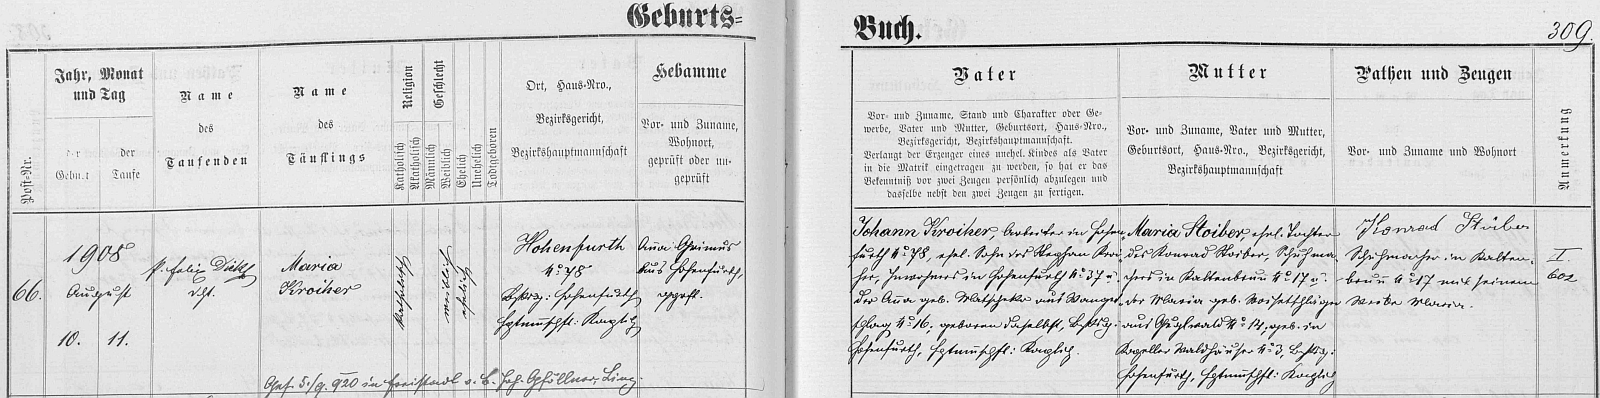 Geburts=
Buch.
309.
Post-Nr.
Jahr, Monat
und Tag
der
Geburt
der
Taufe
Name
des
Taufenden
Name
des
Täuflings
Religion
Katholisch
Akatholisch
Geschlecht
Männlich
Weiblich
Ehelich
Unehelich
Todtgeboren
Ort, Haus-Nro.,
Bezirksgericht,
Bezirkshauptmannschaft
Hebamme
Vor- und Zuname,
Wohnort,
geprüft oder un-
geprüft
Vater
Vor- und Zuname, Stand und Charakter oder Ge-
werbe, Vater und Mutter, Geburtsort, Haus-Nro.,
Bezirksgericht, Bezirkshauptmannschaft.
Verlangt der Erzenger eines unehel. Kindes als Vater
in die Matrik eingetragen zu werden, so hat er das
Bekenntniß vor zwei Zeugen persönlich abzulegen und
dasselbe nebst den zwei Zeugen zu fertigen.
Mutter
Vor- und Zuname, Vater und Mutter,
Geburtsort, Haus-Nro., Bezirksgericht,
Bezirkshauptmannschaft
Pathen und Zeugen
Vor- und Zuname und Wohnort
Anmerkung
66.
1908
August
10. 11.
P. Felix
Maria
Kroiher
katholisch
weiblich
ehelich
Hohenfurth
No 78
Bzksg: Hohenfurth
Hptmschft: Kaplitz
Anna Grimus
aus Hohenfurth,
geprft.
Johann Kroiher, Arbeiter in Hohen-
furth No 78, ehel. Sohn des Stephan Kroi-
her, Inwohners in Hohenfurth No 37 u.
der Anna geb. Watscheka aus Wanget-
schlag No 16, geboren daselbst, Bzksg.
Hohenfurth, Hptmschft: Kaplitz.
Maria Stoiber, ehel. Tochter
des Konrad Stoiber, Schuhma-
chers in Kaltenbrunn No 17 u.
der Maria geb. Woisetschläger
aus Guglwald No 14, geb. in
Kapeller Waldhäuser No 3, Bzksg:
Hohenfurth, Hptmschft: Kaplitz
Konrad Stoiber
Schuhmacher in Kalten-
brunn No 17 mit seinem
Weibe Maria.
I.
602
Get. 5./9. 920 in Freistadt v. b. Joh. Gföllner, Linz.